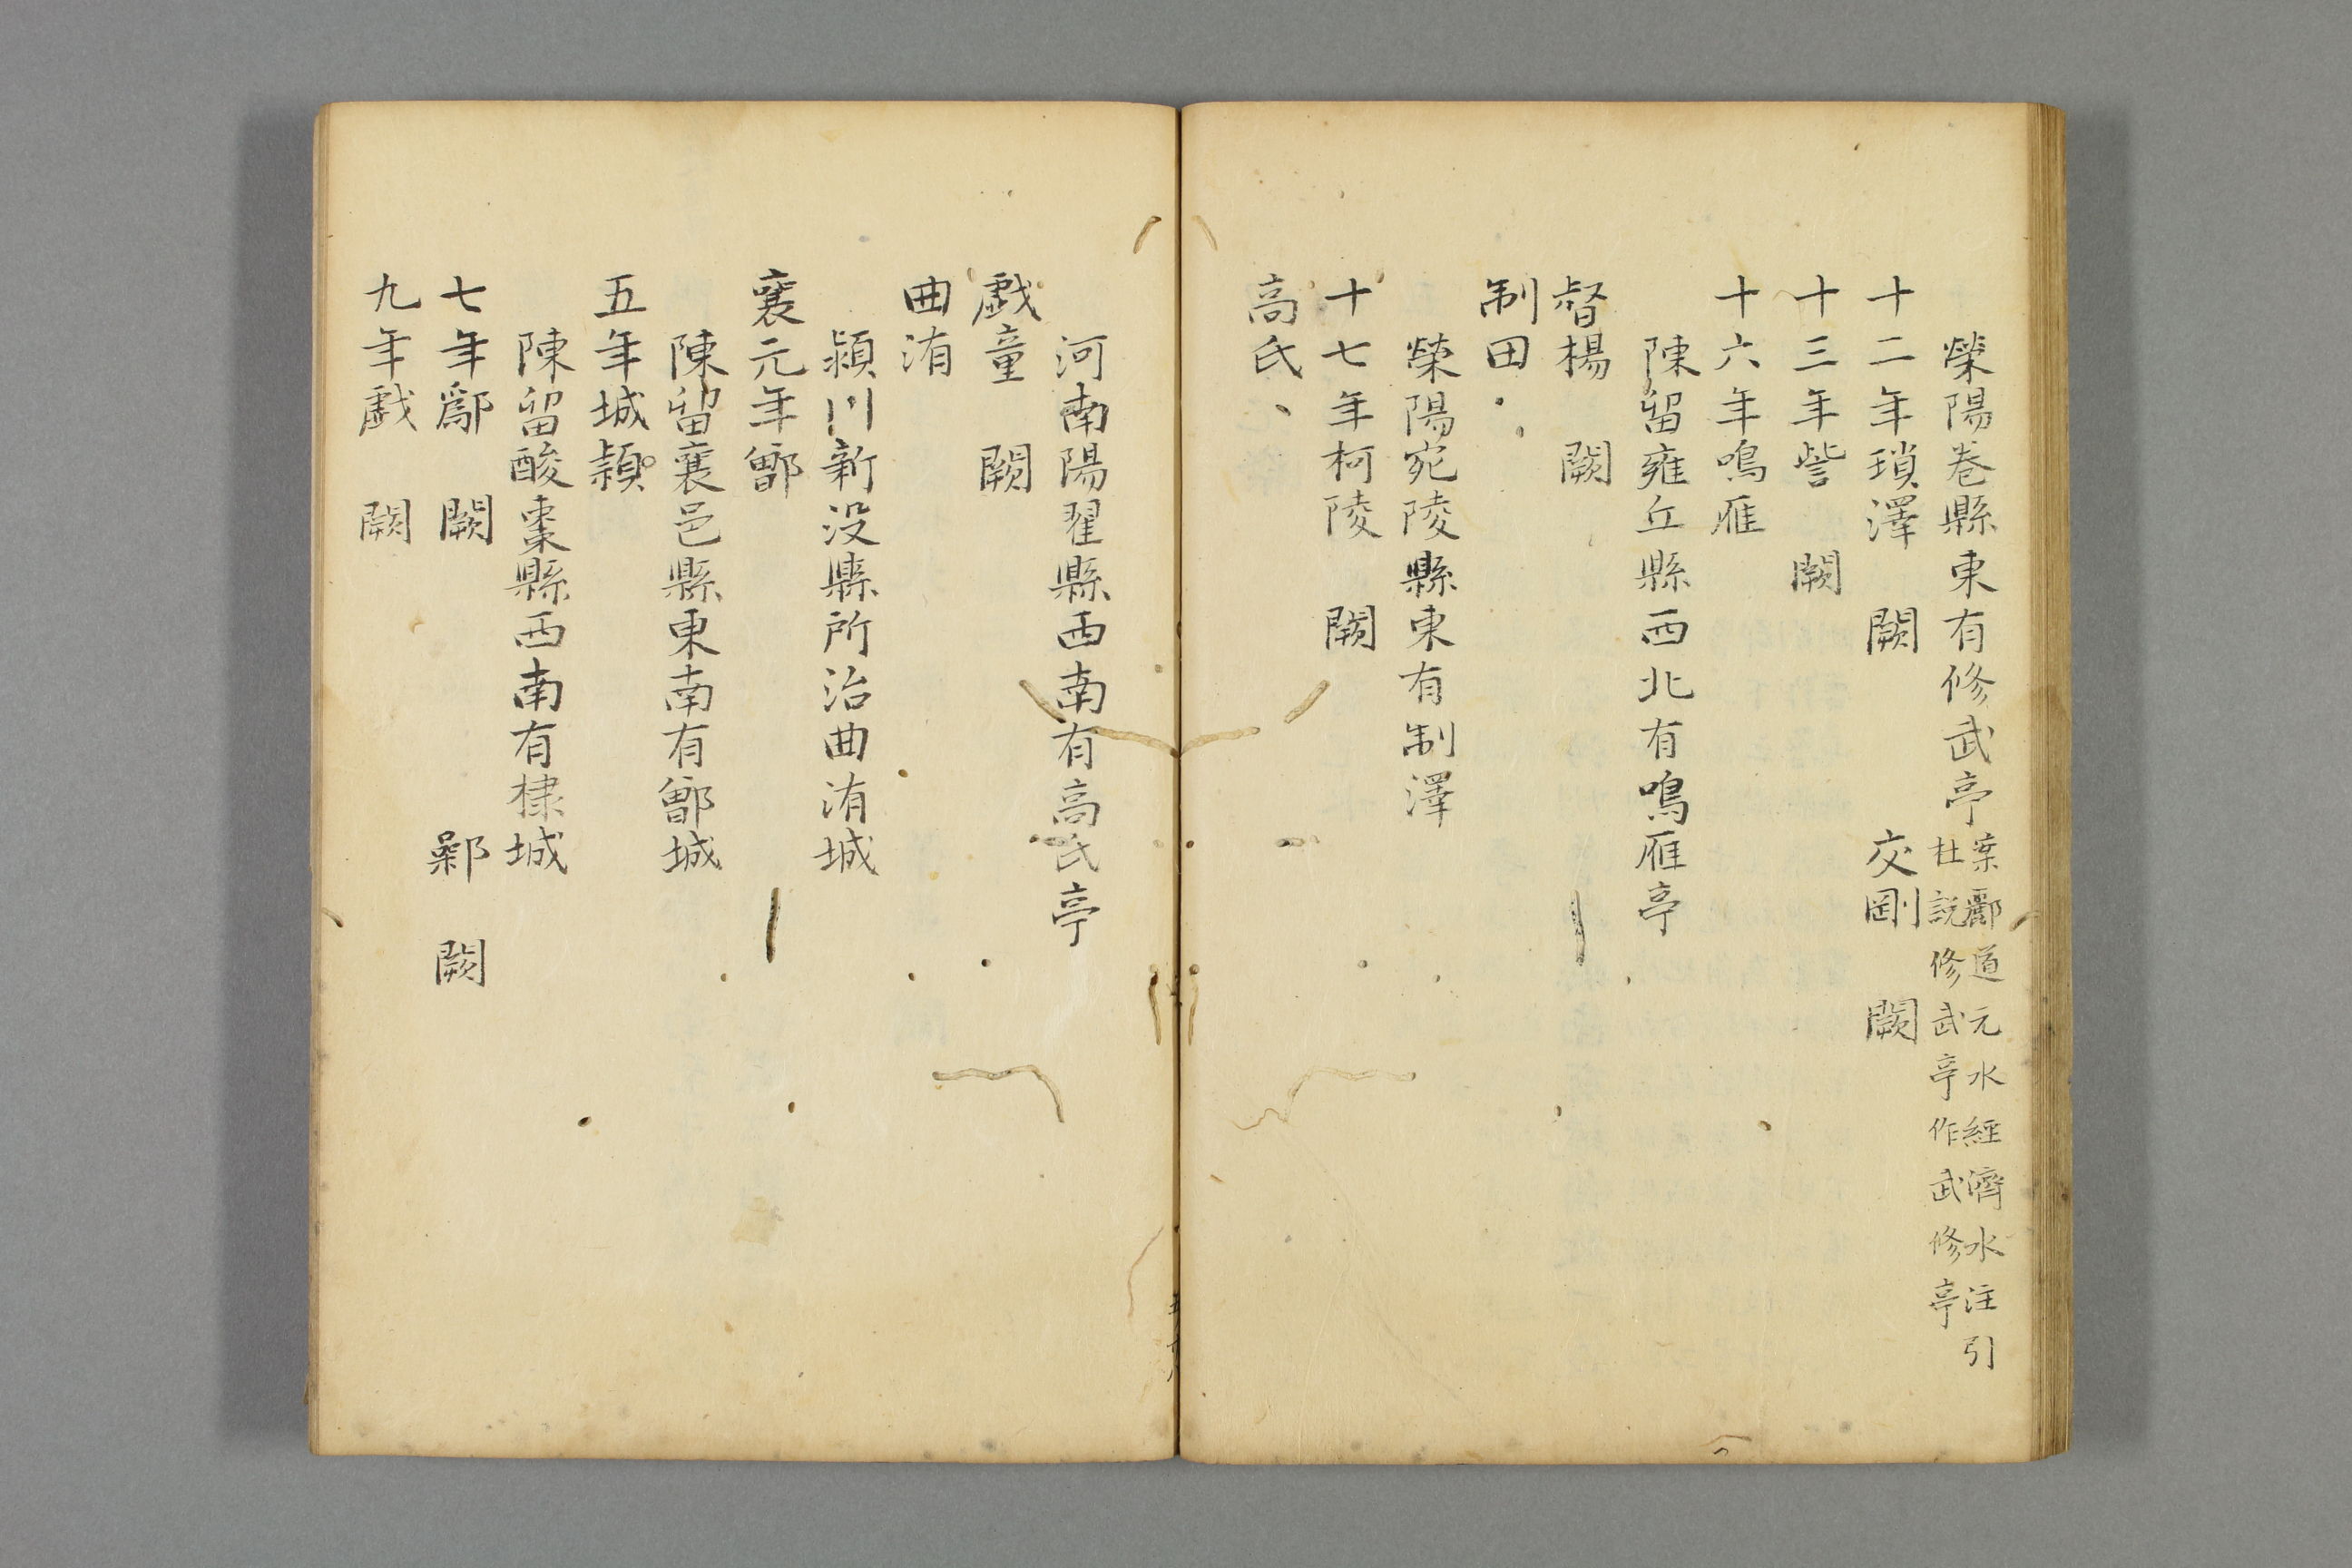 滎陽卷縣東有修武亭案酈道元水經濟水注引
杜説修武亭作武修亭
十二年瑣澤 闕 交剛 闕
十三年訾 闕
十六年鳴雁
陳留雍丘縣西北有鳴雁亭
督楊 闕
制田
滎陽宛陵縣東有制澤
十七年柯陵 闕
高氏
河南陽翟縣西南有高氏亭
戲童 闕
曲洧
潁川新汲縣所治曲洧城
襄元年鄫
陳留襄邑縣東南有鄫城
五年城潁
陳留酸棗縣西南有棣城
七年鄢 闕 鄵 闕
九年戲 闕